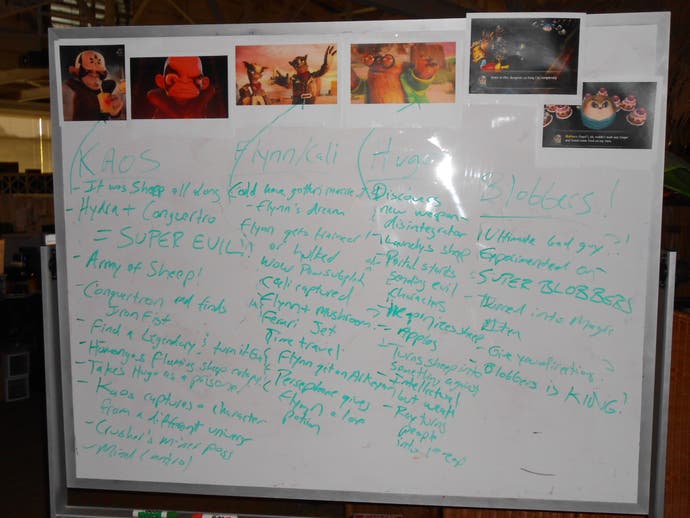 KAOS
- It was Sheep all along
- Hydra + Conquertro
= SUPER EVIL!
- Array of Sheep!
- Conquertron and finds
Iron Fist
- Find a Legendary & turn it
- Humongous Flaming sheep
- Takes Hugo as a prisoner
- Kaos captures a character
from a different univers
- Crusher's miner pass
- Mind Control
Flynn/Cali
Could have gotten
- Flynn's dream
Flynn gets
or hulked
WOW Pow subplot
Cali captured
Flynn + Mushroom
Ferari Jet
Time travel
Flynn get an
Persephone gives
Flynn a love
potion
Hugo
Discovers
new weapon
disintegrator
sheep
Portal starts
Sending evil
characters
sheep
- Apples
Turns sheep into
something against
- Intellectual
but weak
- Ray turns
people
into
Blobbers!
Ultimate bad guy
Experimented on
SUPER BLOBBERS
- Turned into Magic
- Give you directions
- Blobbers is KING?